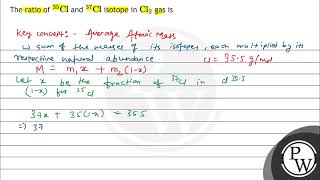 The ratio of ³⁵Cl and ³⁷Cl isotope in Cl₂ gas is
Key concept:- Average Atomic Mass
↳ sum of the masses of its isotopes, each multiplied by its
respective natural abundance
Cl = 35.5 g/mol
M = m₁x + m₂(1-x)
Let x be the fraction of ³⁷Cl in Cl³⁵·⁵
(1-x) for ³⁵Cl
37x + 35(1-x) = 35.5
⇒ 37
P
W